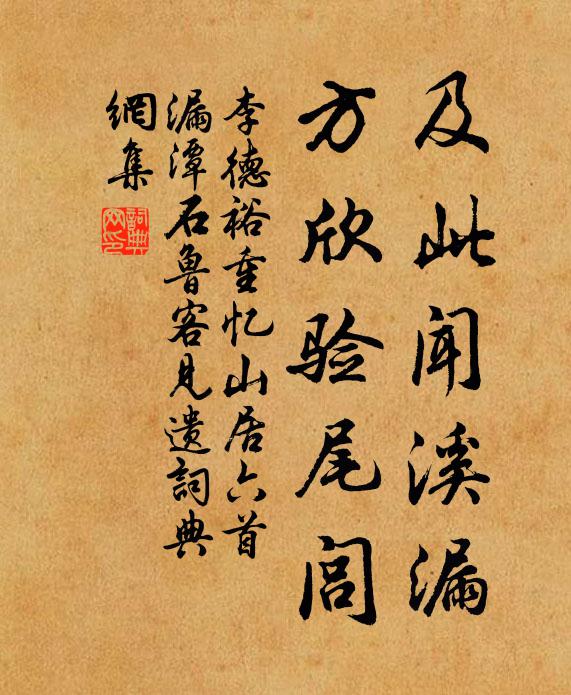 及此闻溪漏
方欣验尾闾
李德裕重忆山居六首
漏潭石鲁客见遗詞典
網集
詞典網印